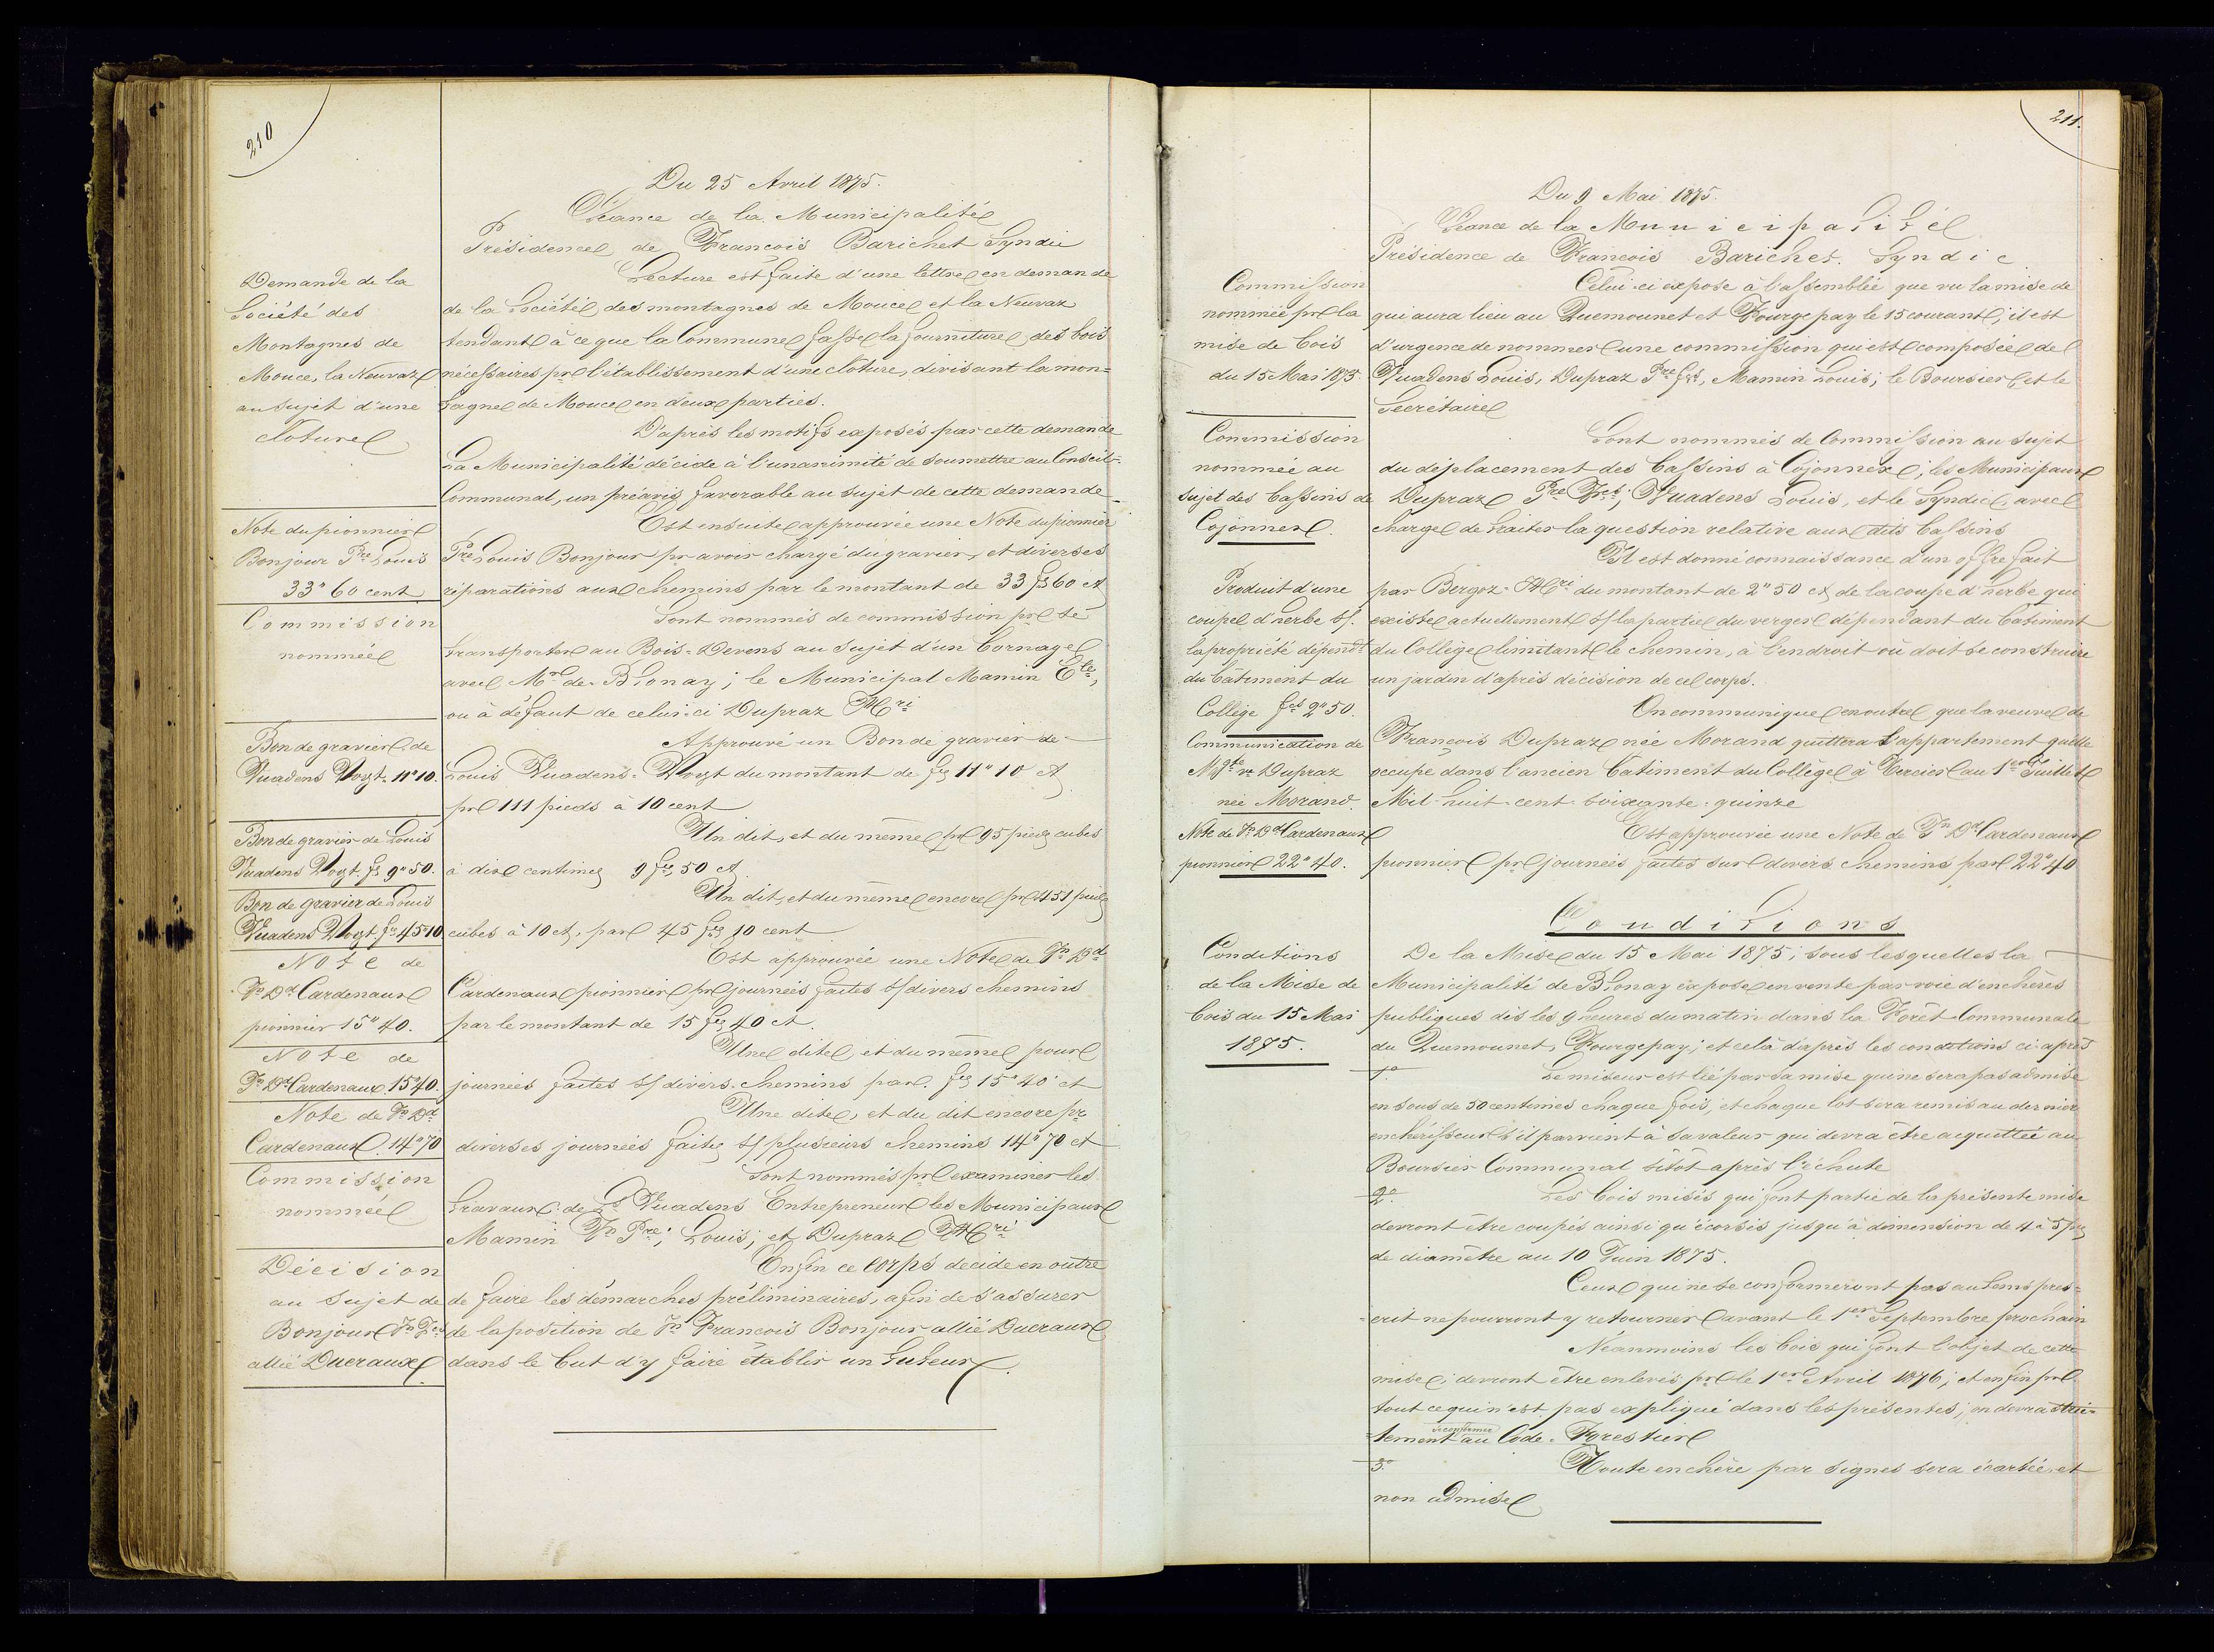 210
Du 25 Avril 1875.
Séance de la Municipalité
Présidence de François Barichet Syndic
Demande de la
Société des
Montagnes de
Mouce, la Neuvaz
au sujet d'une
cloture
Lecture est faite d'une lettre en demande
de la Société des montagnes de Mouce et la Neuvaz
tendant à ce que la Commune fasse la fourniture des bois
nécessaires pr l'établissement d'une cloture, divisant la mon=
tagne de Mouce en deux parties.
D'après les motifs exposés par cette demande
La Municipalité décide à l'unanimité de soumettre au Conseil-
Communal, un préavis favorable au sujet de cette demande
Note du pionnier
Bonjour Pre Louis
33" 60 cent
Est ensuite approuvée une Note du pionnier
Pre Louis Bonjour pr avoir chargé du gravier, et diverses
réparations aux chemins par le montant de 33 fs 60 ct
Commission
nommée
Sont nommés de commission pr se
transporter au Bois-Devens au sujet d'un bornage
avec Mr de Blonay; le Municipal Mamin Ele,
ou à défaut de celui-ci Dupraz Hri
Bon de gravier de
Vuadens Voyt 11"10.
Approuvé un Bon de gravier de
Louis Vuadens-Voyt du montant de fs 11"10 ct
pr 111 pieds à 10 cent
Bon de gravier de Louis
Vuadens Voyt fs 9"50.
Un dit, et du même pr 95 pieds cubes
à dix centimes 9 fcs, 50 ct
Bon de gravier de Louis
Vuadens Voyt fs 45"10
Un dit, et du même encore pr 451 pieds
cubes à 10 ct, par 45 fcs 10 cent
Note de
Fs Dd Cardenaux
pionnier 15"40.
Est approuvée une Note de Fs Dd
Cardenaux pionnier pr journées faites s/ divers chemins
par le montant de 15 fcs 40 ct.
Note de
Fs Dd Cardenaux 15"40.
Une dite, et du même pour
journées faites s/ divers chemins par fcs 15"40 ct
Note de Fs Dd
Cardenaux 14"70
Une dite, et du dit encore pr
diverses journées faites s/ plusieurs chemins 14"70 ct
Commission
nommée
Sont nommés pr examiner les
travaux de Ls Vuadens Entrepreneur les Municipaux
Mamin Fs Pre; Louis; et Dupraz Hri
Décision
au sujet de
Bonjour Jn Fçs
allié Ducraux
Enfin ce Corps décide en outre
de faire les démarches préliminaires, afin de s'assurer
de la position de Jn François Bonjour allié Ducraux
dans le but d'y faire établir un tuteur.
211.
Du 9 Mai 1875.
Séance de la Municipalité
Présidence de François Barichet. Syndic
Commission
nommée pr la
mise de bois
du 15 Mai 1875.
Celui-ci expose à l'assemblée que vu la mise de
qui aura lieu au Quemounet et Fourgepay le 15 courant; il est
d'urgence de nommer une commission qui est composée de
Vuadens Louis, Dupraz Pre fçs, Mamin Louis; le Boursier et le
Secrétaire
Commission
nommée au
sujet des bassins de
Cojonnex.
Sont nommés de Commission au sujet
du déplacement des bassins à Cojonnex; les Municipaux
Dupraz Pre Fçs; Vuadens Louis, et le Syndic, avec
charge de traiter la question relative aux dits bassins
Produit d'une
coupe d'herbe s/.
la propriété dépendt
du bâtiment du
Collège fcs 2"50.
Il est donné connaissance d'un offre fait
par Bergoz-Hri du montant de 2"50 ct, de la coupe d'herbe qui
existe actuellement s/ la partie du verger dépendant du bâtiment
du Collège limitant le chemin, à l'endroit où doit se construire
un jardin d'après décision de ce corps.
Communication de
Mgte ve Dupraz
née Morand.
On communique en outre que la veuve de
François Dupraz née Morand quittera l'appartement qu'elle
occupe dans l'ancien batiment du Collège à Tercier au 1er Juillet
Mil-huit-cent-soixante-quinze
Note de Fs Dd Cardenaux
pionnier 22"40.
Est approuvée une Note de Fs Dd Cardenaux
pionnier pr journées faites sur divers chemins par 22"40
Conditions
Conditions
de la Mise de
bois du 15 Mai
1875.
De la Mise du 15 Mai 1875; sous lesquelles la
Municipalité de Blonay expose en vente par voie d'enchères
publiques dès les 9 heures du matin dans la Forêt Communale
du Quemounet, Fourgepay; et celà d'après les conditions ci-après
1o Le miseur est lié par sa mise qui ne sera pas admise
en sous de 50 centimes chaque fois, et chaque lot sera remis au dernier
enchérisseur s'il parvient à sa valeur qui devra être acquittée au
Boursier Communal sitôt après l'échute
2o Les bois misés qui font partie de la présente mise
devront être coupés ainsi qu'écorsés jusqu'à dimension de 4 à 5 pces
de diamètre au 10 Juin 1875.
Ceux qui ne se conformeront pas au tems pres=
=crit ne pourront y retourner avant le 1er Septembre prochain
Néanmoins les bois qui font l'objet de cette
mise; devront être enlevés pr le 1er Avril 1876; et enfin pr
tout ce qui n'est pas expliqué dans les présentes; on devra stric=
=tement se conformer au Code-Forestier
3o Toute enchère par signes sera écartée et
non admise